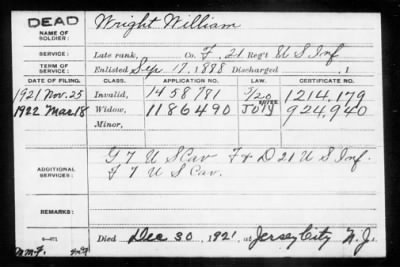 DEAD
NAME OF SOLDIER: Wright William
SERVICE: Late rank, Co. F, 21 Reg't U S Inf
TERM OF SERVICE: Enlisted Sep. 17, 1898 Discharged , 1
DATE OF FILING. CLASS. APPLICATION NO. CERTIFICATE NO.
1921 Nov. 25 Invalid, 1458781 1214,179
1922 Mar 18 Widow, 1186490 July 924,940
Minor,
ADDITIONAL SERVICES: G 7 U S Cav F & D 21 U S Inf.
F 7 U S Cav.
REMARKS:
Died Dec 30, 1921, at Jersey City N. J.